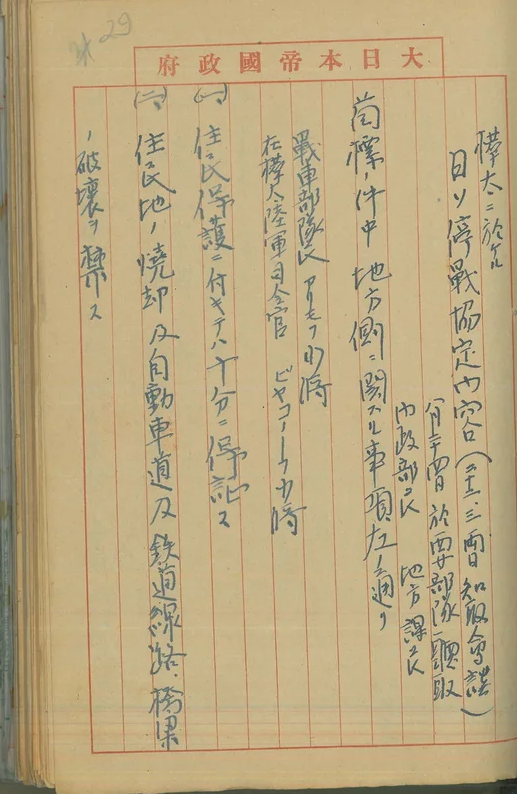 29
大日本帝國政府
樺太ニ於ケル
日ソ停戰協定内容（知取會談）
八月二十 日 於 部隊聽取
内政部長 地方課長
首標ノ件中地方側ニ関スル事項左ノ通リ
戰車部隊長 アリモフ少将
在樺太陸軍司令官 ビヤコーノフ少将
(一) 住民保護ニ付キテハ十分ニ保証ス
(二) 住民地ノ燒却及自動車道及鉄道線路、橋梁
ノ破壊ヲ禁ス